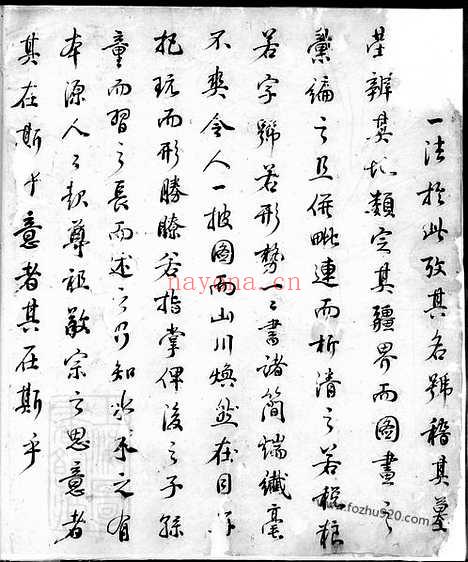 一法於此攷其名號稽其墓
塋辨其坵類定其疆界而圖畫之
彙編之且併毗連而析清之若税粮
若字號若形勢一〻書諸簡端纖毫
不爽令人一披圖而山川煥然在目
把玩而形勝瞭若指掌俾後之子孫
童而習之長而述之乃知水木之有
本源人〻敦尊祖敬宗之思意者
其在斯乎意者其在斯乎
nayona.cn
www.fozhu920.com